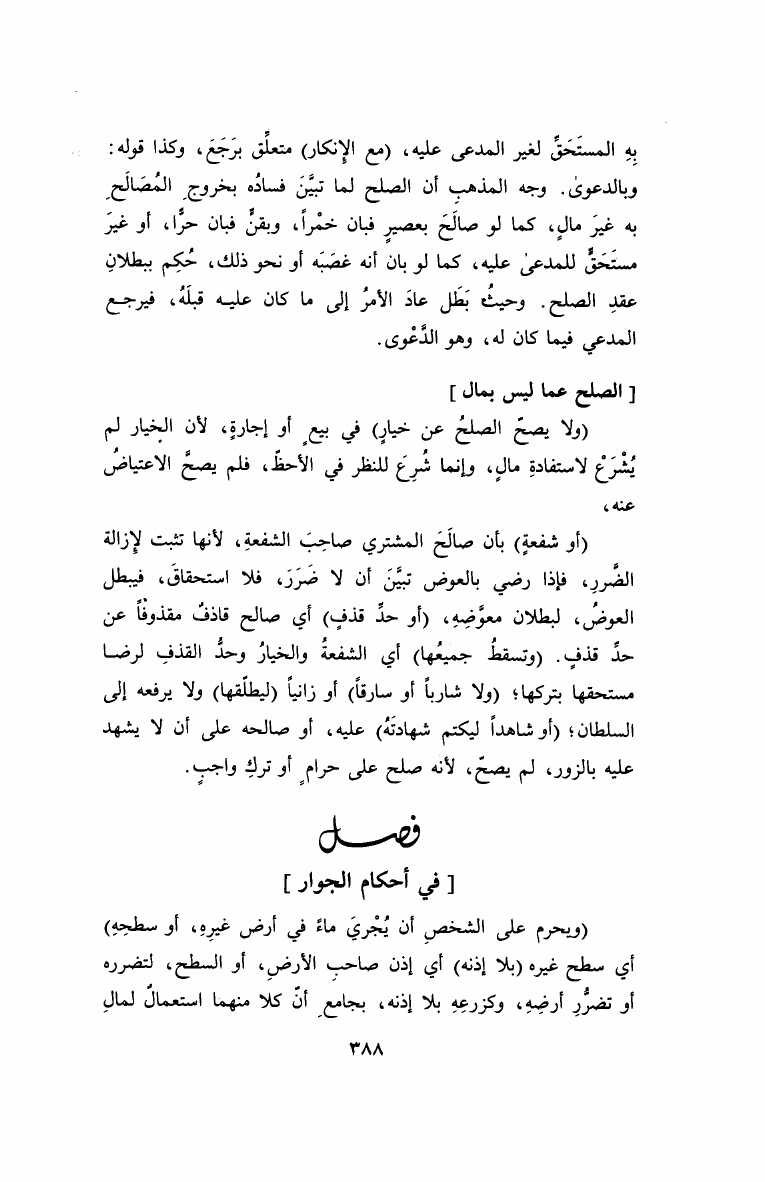 بِهِ المستَحَقِّ لغير المدعى عليه، (مع الإنكار) متعلِّق برَجَعَ، وكذا قوله:
وبالدعوىٰ. وجه المذهب أن الصلح لما تبيَّنَ فسادُه بخروجِ المُصَالَحِ
به غيرَ مالٍ، كما لو صالَحَ بعصيرٍ فبان خمْراً، وبقنٍّ فبان حرًّا، أو غيرَ
مستَحَقٍّ للمدعىٰ عليه، كما لو بان أنه غصَبَه أو نحو ذلك، حُكِم ببطلانِ
عقدِ الصلح. وحيثُ بَطَل عادَ الأمرُ إلى ما كان عليه قبلَهُ، فيرجع
المدعي فيما كان له، وهو الدَّعْوى.
[ الصلح عما ليس بمال ]
(ولا يصحّ الصلحُ عن خيارٍ) في بيعٍ أو إجارةٍ، لأن الخيار لم
يُشْرَعْ لاستفادةِ مالٍ، وإنما شُرِعَ للنظر في الأحظّ، فلم يصحَّ الاعتياضُ
عنه،
(أو شفعةٍ) بأن صالَحَ المشتري صاحِبَ الشفعةِ، لأنها تثبت لإزالة
الضَّررِ، فإذا رضي بالعوض تبيَّنَ أن لا ضَرَرَ، فلا استحقاقَ، فيبطل
العوضُ، لبطلان معوَّضِهِ، (أو حدِّ قذفٍ) أي صالح قاذفٌ مقذوفاً عن
حدِّ قذفٍ. (وتسقطُ جميعُها) أي الشفعةُ والخيارُ وحدُّ القذفِ لرضا
مستحقها بتركها؛ (ولا شارباً أو سارقاً) أو زانياً (ليطلّقها) ولا يرفعه إلى
السلطان؛ (أو شاهداً ليكتم شهادتَهُ) عليه، أو صالحه على أن لا يشهد
عليه بالزور، لم يصحّ، لأنه صلح على حرامٍ أو تركِ واجبٍ.
فصل
[ في أحكام الجوار ]
(ويحرم على الشخصِ أن يُجْريَ ماءً في أرض غيرِهِ، أو سطحِهِ)
أي سطح غيره (بلا إذنه) أي إذن صاحبِ الأرضِ، أو السطح، لتضرره
أو تضرُّرِ أرضِهِ، وكزرعِهِ بلا إذنه، بجامعِ أنّ كلا منهما استعمالٌ لمالِ
٣٨٨